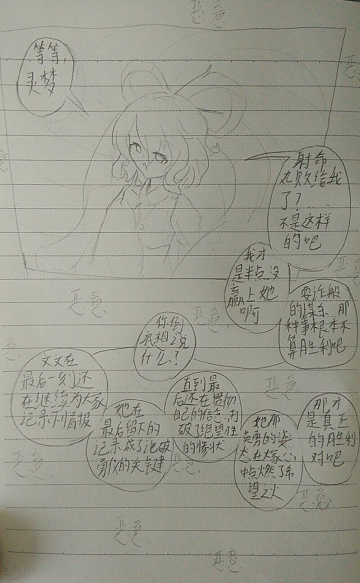 等等,
灵梦
射命
丸败给我
了?……
不是这样
的吧
我才
是半点没
赢上她
啊
要诈般
的谋杀,那
种事根本不
算胜利吧
你倒
底想说
什么?
文文在
最后一刻还
在继续为大家
记录下情报
她在
最后留下的
记录成了击破
敌的关键
直到最
后还在贯彻
自己的信念,打
破了绝望性
的胜状
她那
英勇的姿
态在大家心
中点燃了希
望之火
那才
是真正
的胜利
对吧
恶意
恶意
恶意
恶意
恶意
恶意
恶意
恶意
恶意
恶意
恶意